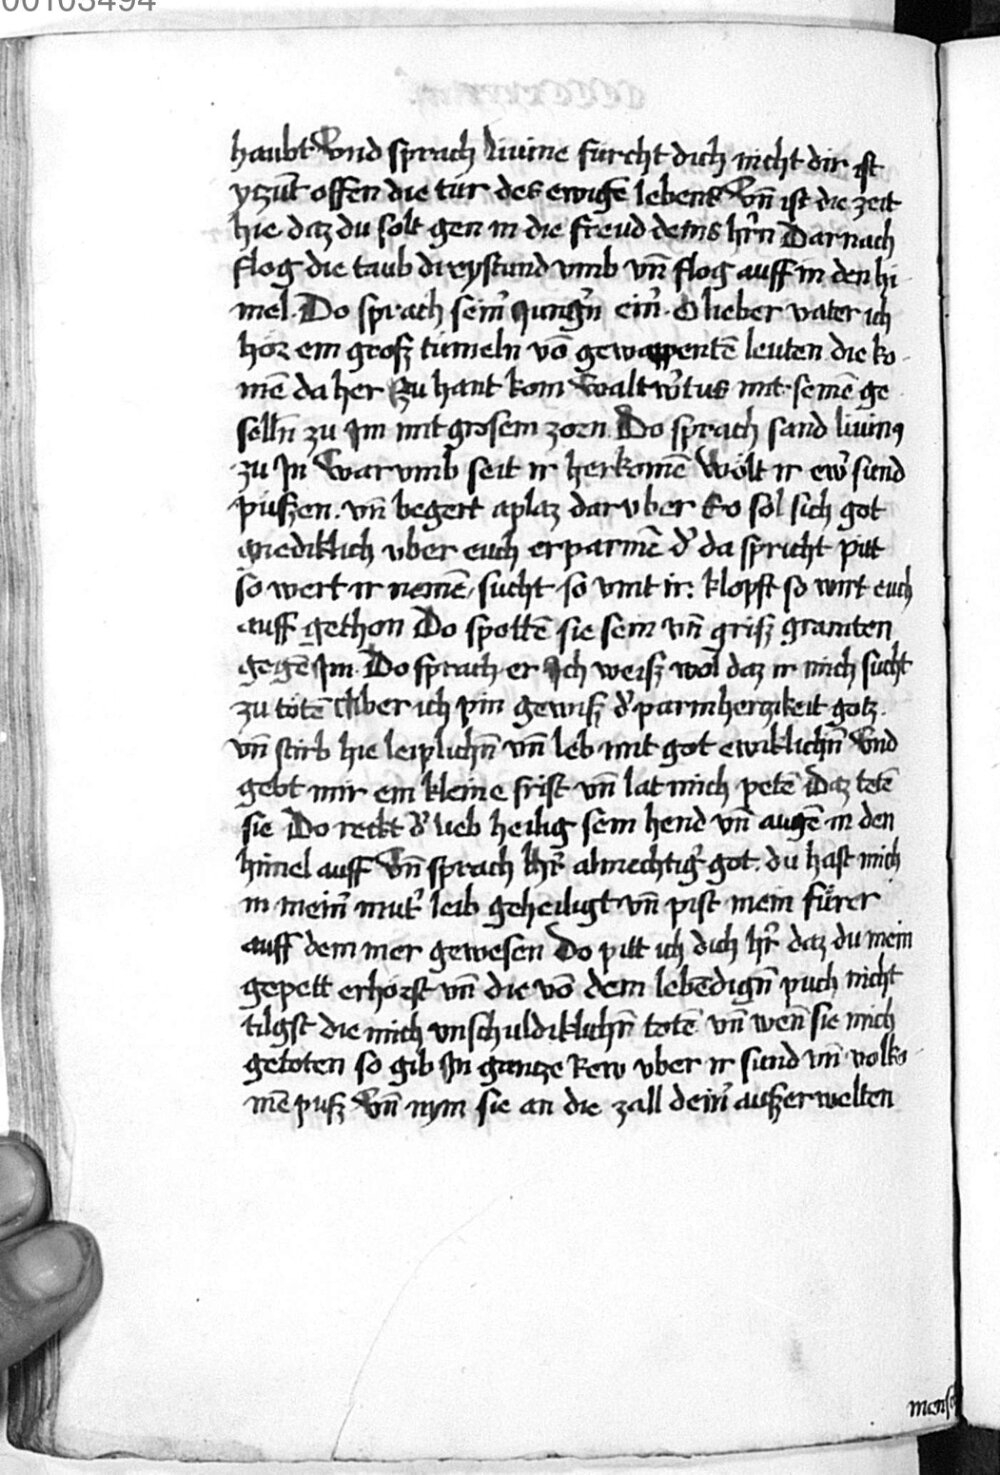 00103494
haubt Vnd sprach liuine furcht dich nicht dir ist
yczut offen die tur des ewigē lebens Vn̄ ist die zeit
hie daz du solt gen in die freud deins hr̄n Darnach
flog die taub dreystund vmb vn̄ flog auff in den hi
mel. Do sprach sein̾ Jung̾n ein̾. O lieber vater ich
hor ein grosz tumeln vō gewappentē leuten die ko
mē da her Zu hant kom Waltw̾tus mit seinē ge
selln̄ zu Jm mit grosem zorn Do sprach sand liuinꝰ
zu Jn Warvmb seit ir herkomē Wolt ir ew̾ sund
puszen. vn̄ begert aplaz darvber So sol sich got
gnediklich vber euch erparmē d̾ da spricht pitt
so wert ir nemē, sucht so vint ir: klopft so wirt euch
auff gethon Do spottē sie sein vn̄ grisz gramten
gegē Jm. Do sprach er Jch weisz wol daz ir mich sucht
zu totē Aber ich pin gewisz d̾ parmherczikeit gotz.
vn̄ stirb hie leiplichn̄ vn̄ leb mit got ewiklichn̄ Vnd
gebt mir ein kleine frist vn̄ lat mich petē Daz tetē
sie Do reckt d̾ lieb heilig sein hend vn̄ augē in den
himel auff Vn̄ sprach hr̄ almechtig̾ got. du hast mich
in mein̾ mut̾ leib geheiligt vn̄ pist mein fürer
auff dem mer gewesen Do pitt ich dich hr̄ daz du mein
gepett erhorst vn̄ die vō dem lebēdign̄ puch nicht
tilgst die mich vnschuldiklichn̄ totē vn̄ wen̄ sie mich
getoten so gib Jn gancze Rew vber ir sund vn̄ volko
mē pusz Vn̄ nym sie an die zall dein̾ auszerwelten